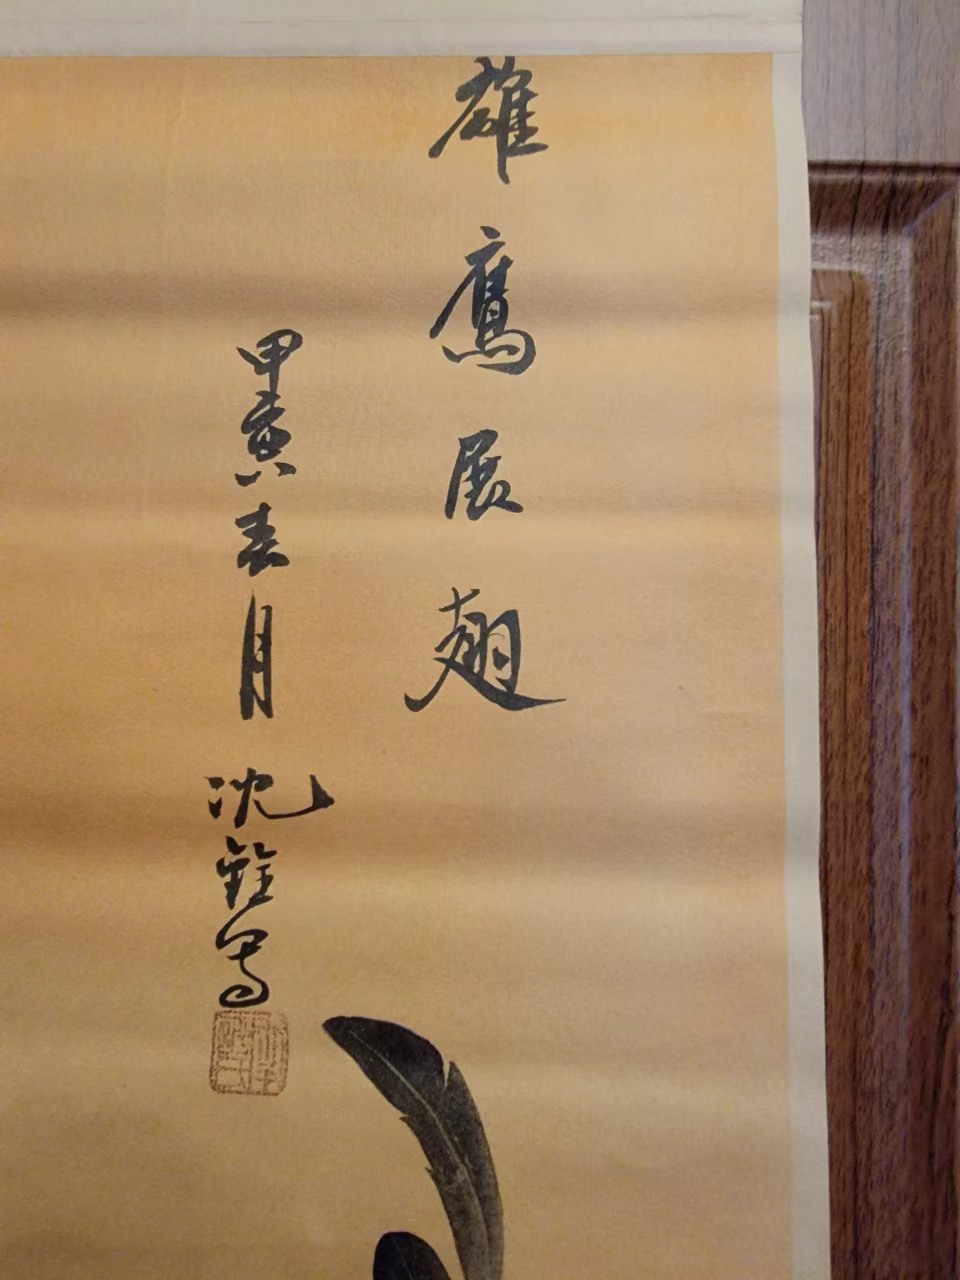 雄鹰展翅
甲寅春月
沈銓写